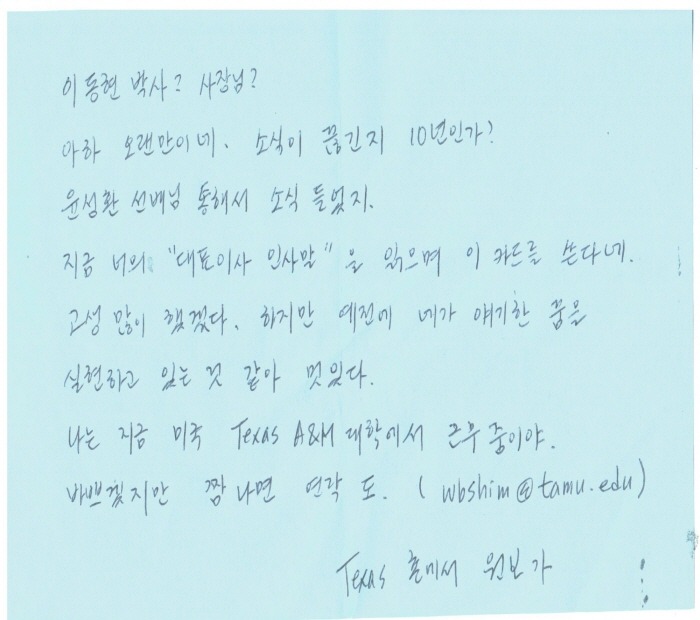 이동현 박사? 사장님?
아하 오랜만이네. 소식이 끊긴지 10년인가?
윤성환 선배님 통해서 소식 들었지.
지금 너의 "대표이사 인사말"을 읽으며 이 카드를 쓴다네.
고생 많이 했겠다. 하지만 예전에 네가 얘기한 꿈을
실현하고 있는 것 같아 멋있다.
나는 지금 미국 Texas A&M 대학에서 근무 중이야.
바쁘겠지만 짬 나면 연락 도. (wbshim@tamu.edu)
Texas 촌에서 원보가